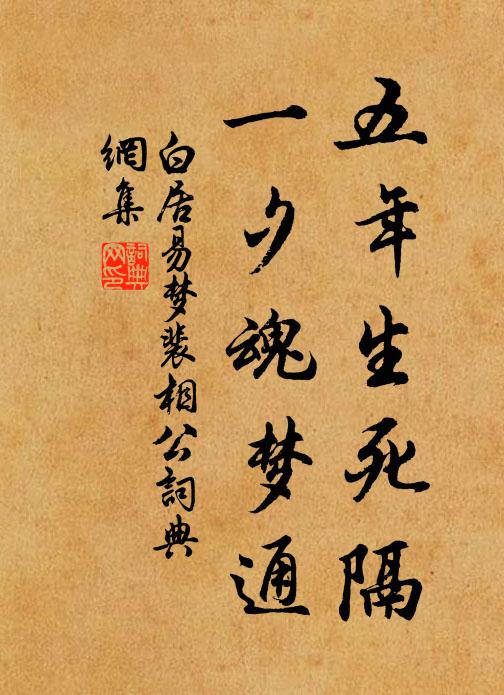 五年生死隔
一夕魂梦通
白居易梦裴相公詞典
網集
詞典
网印